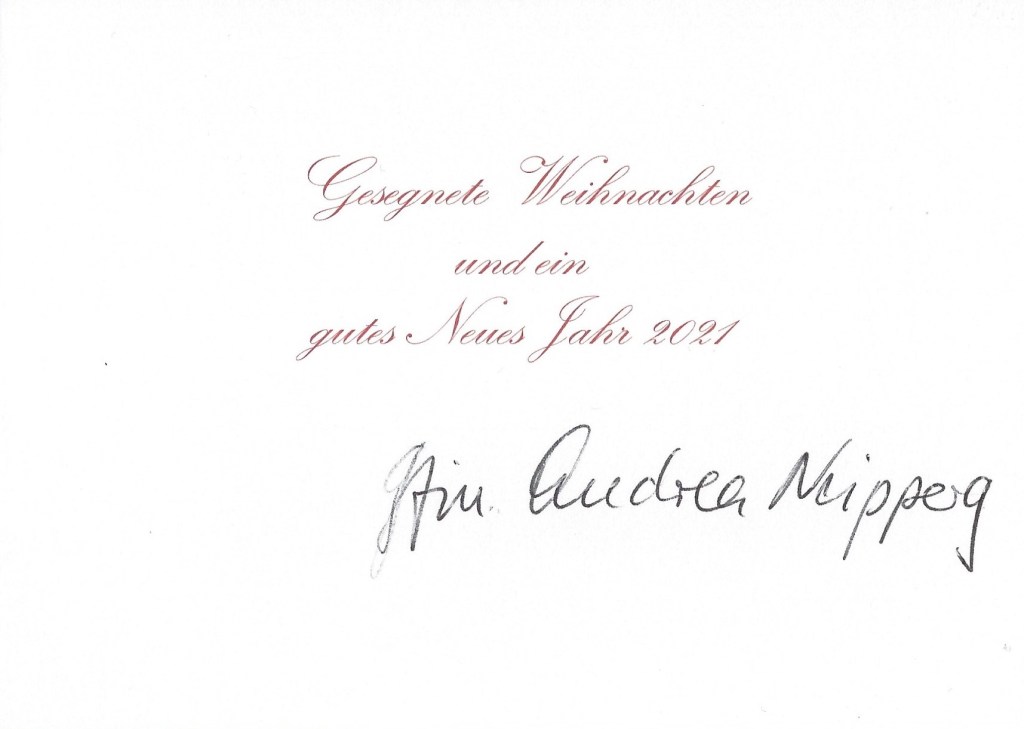 Gesegnete Weihnachten
und ein
gutes Neues Jahr 2021
Gfin. Andrea Neipperg